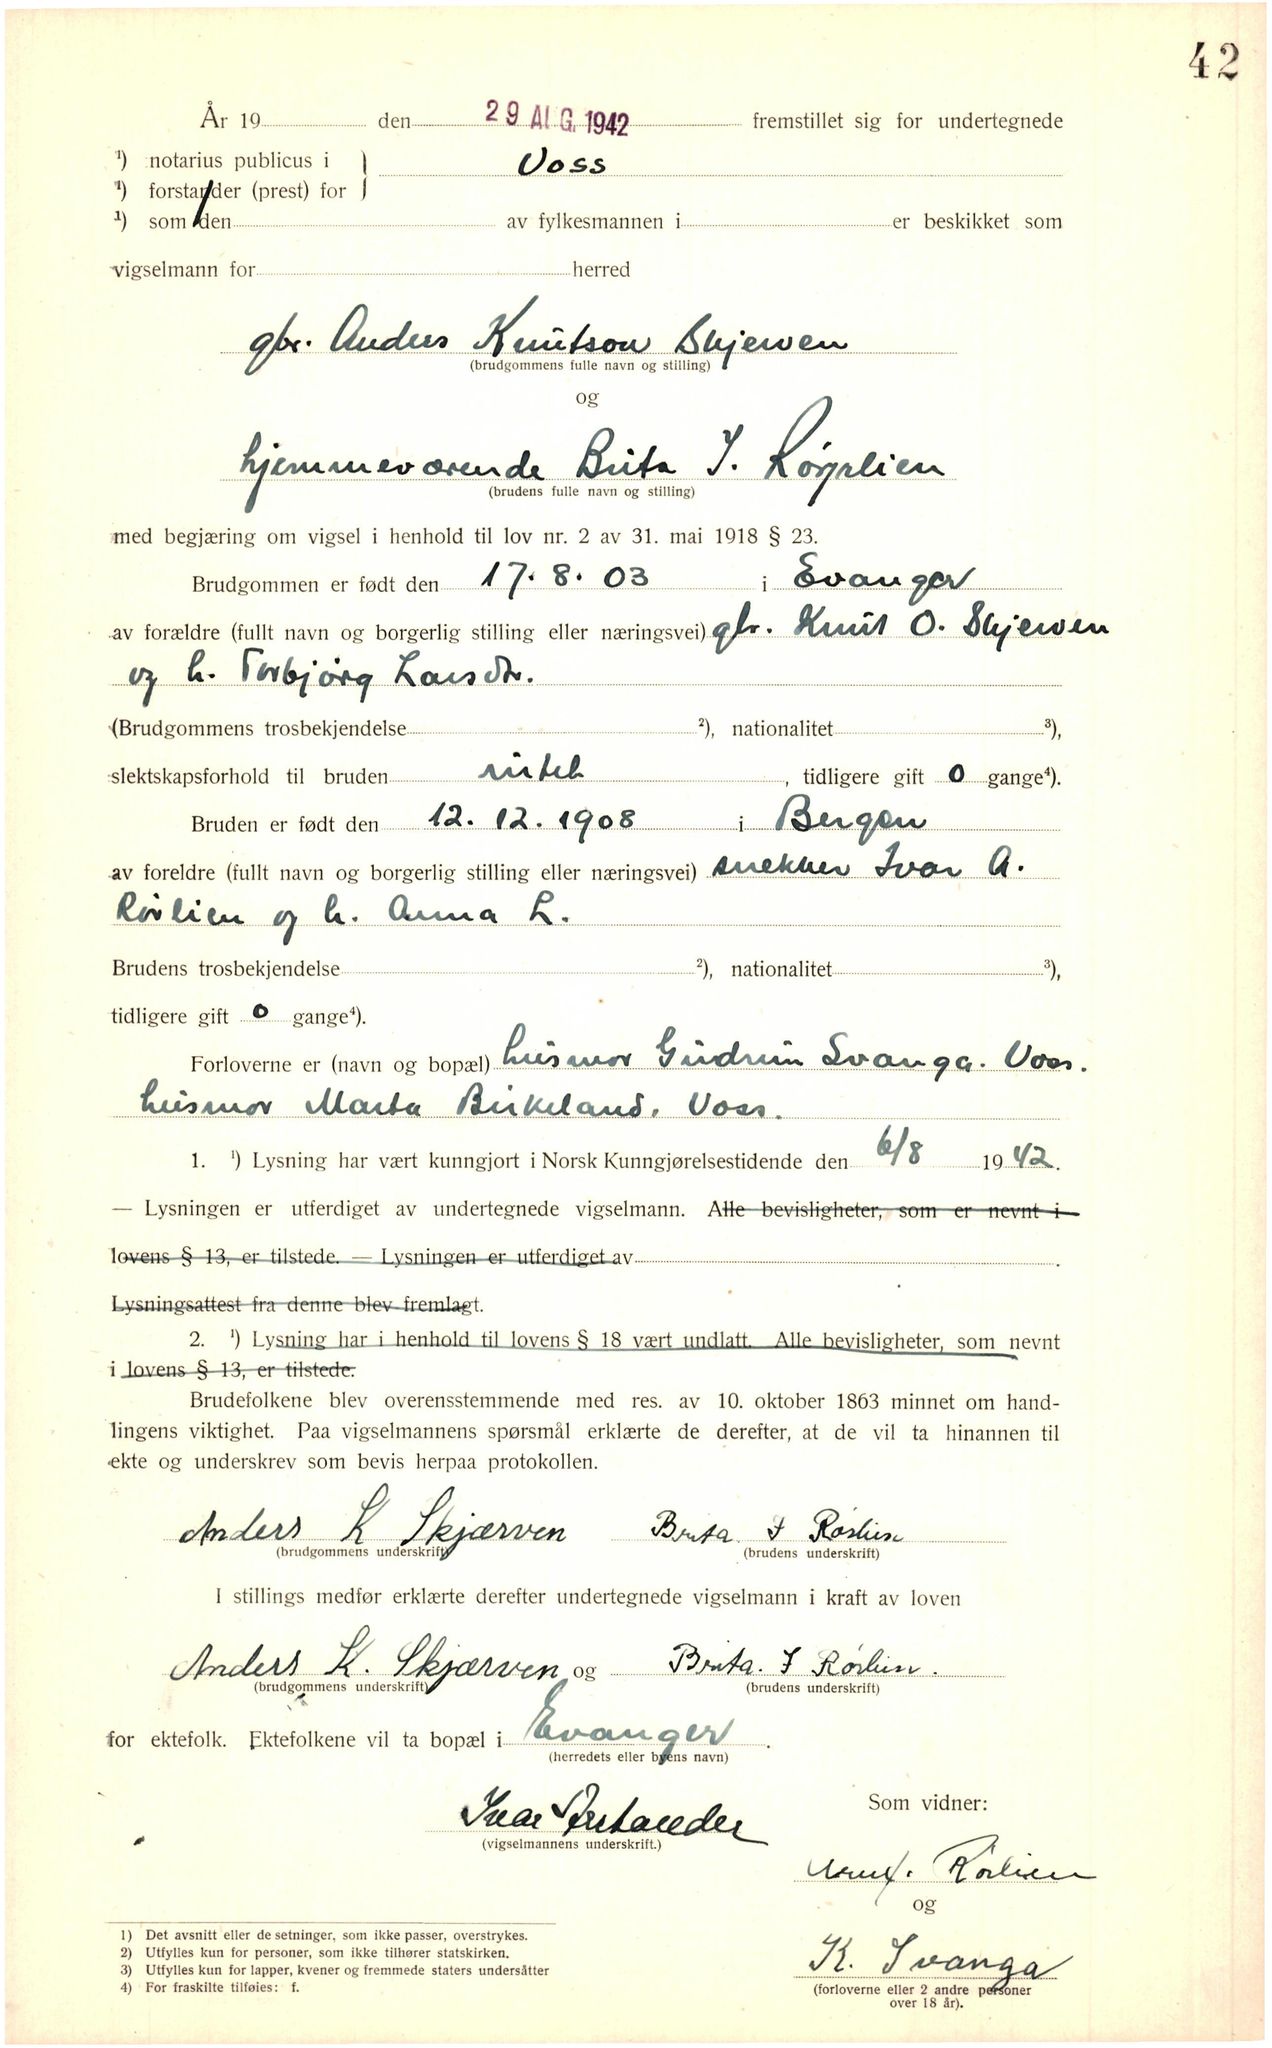 42
År 19 den 29 AUG. 1942 fremstillet sig for undertegnede
¹) notarius publicus i } Voss
¹) forstander (prest) for
¹) som den av fylkesmannen i er beskikket som
vigselmann for herred
gbr. Anders Knutson Skjerven
(brudgommens fulle navn og stilling)
og
hjemmeværende Brita I. Rørlien
(brudens fulle navn og stilling)
med begjæring om vigsel i henhold til lov nr. 2 av 31. mai 1918 § 23.
Brudgommen er født den 17. 8. 03 i Evanger
av forældre (fullt navn og borgerlig stilling eller næringsvei) gbr. Knut O. Skjerven
og h. Torbjørg Larsdtr.
(Brudgommens trosbekjendelse ²), nationalitet ³),
slektskapsforhold til bruden intet, tidligere gift 0 gange⁴).
Bruden er født den 12. 12. 1908 i Bergen
av foreldre (fullt navn og borgerlig stilling eller næringsvei) snekker Ivar A.
Rørlien og h. Anna L.
Brudens trosbekjendelse ²), nationalitet ³),
tidligere gift 0 gange⁴).
Forloverne er (navn og bopæl) husmor Gudrun Svanga. Voss.
husmor Marta Birkeland. Voss.
1. ¹) Lysning har vært kunngjort i Norsk Kunngjørelsestidende den 6/8 1942.
— Lysningen er utferdiget av undertegnede vigselmann. Alle bevisligheter, som er nevnt i
lovens § 13, er tilstede. — Lysningen er utferdiget av .
Lysningsattest fra denne blev fremlagt.
2. ¹) Lysning har i henhold til lovens § 18 vært undlatt. Alle bevisligheter, som nevnt
i lovens § 13, er tilstede.
Brudefolkene blev overensstemmende med res. av 10. oktober 1863 minnet om hand-
lingens viktighet. Paa vigselmannens spørsmål erklærte de derefter, at de vil ta hinannen til
ekte og underskrev som bevis herpaa protokollen.
Anders K Skjærven Brita I Rørlien
(brudgommens underskrift) (brudens underskrift)
I stillings medfør erklærte derefter undertegnede vigselmann i kraft av loven
Anders K. Skjærven og Brita. I Rørlien.
(brudgommens underskrift) (brudens underskrift)
for ektefolk. Ektefolkene vil ta bopæl i Evanger.
(herredets eller byens navn)
Ivar
(vigselmannens underskrift.)
Som vidner:
Rørlien
og
K. Svanga
(forloverne eller 2 andre personer
over 18 år).
1) Det avsnitt eller de setninger, som ikke passer, overstrykes.
2) Utfylles kun for personer, som ikke tilhører statskirken.
3) Utfylles kun for lapper, kvener og fremmede staters undersåtter
4) For fraskilte tilføies: f.